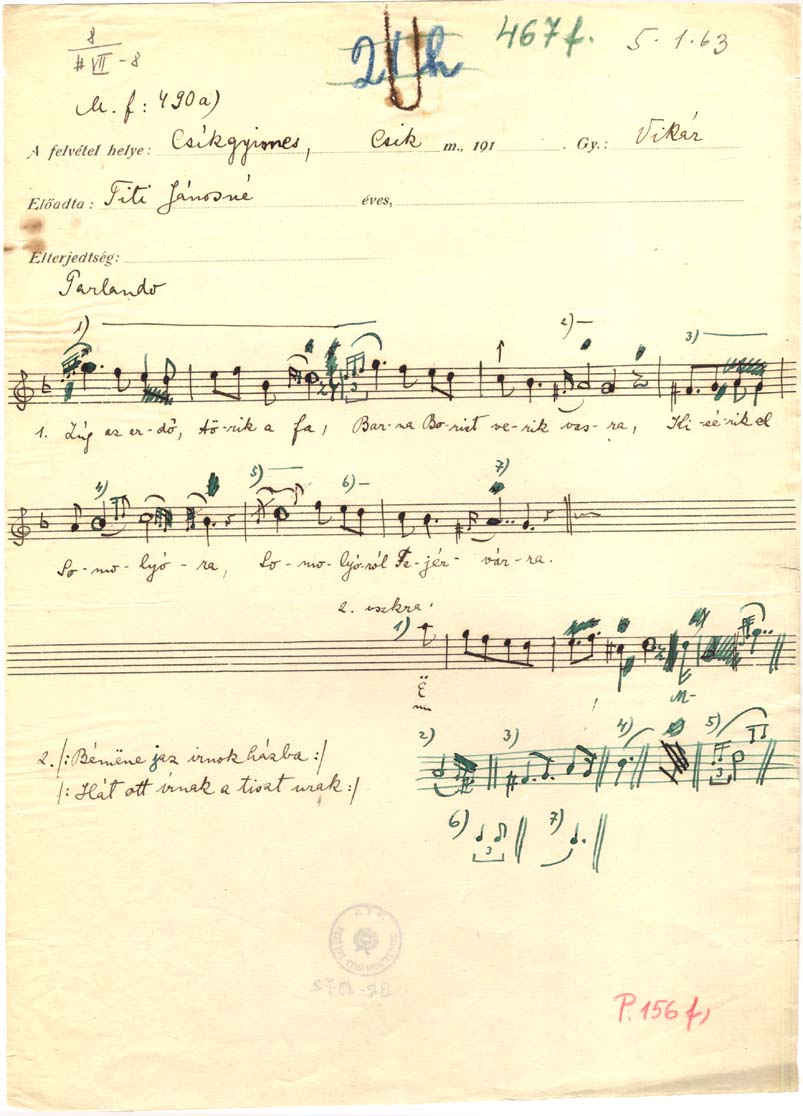 8
VII - 8
21h
467 f.
5.1.63
M. f: 490a)
A felvétel helye: Csíkgyimes, Csík m., 191 . Gy.: Vikár
Előadta: Titi Jánosné éves,
Elterjedtség:
Parlando
1) 2) 3)
1. Zúg az er-dő, tö-rik a fa, Bar-na Bo-rist ve-rik vas-ra, Ki-sé-rik el
4) 5) 6) 7)
So-mo-lyó-ra, So-mo-lyó-ról Fe-jér-vár-ra.
2. vszkra:
1)
Ë
M-
2) 3) 4) 5)
2. /: Béméne jaz irnok házba :/
/: Hát ott írnak a tiszt urak :/
6) 7)
3
P. 156 f)